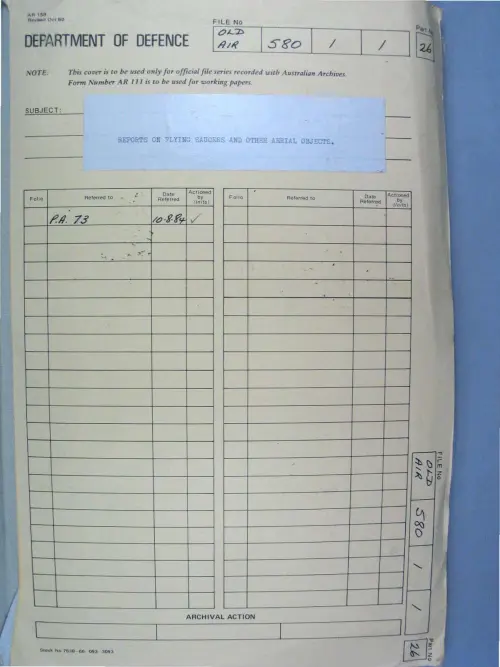 AR 158
FILE No
Part No
DEPARTMENT OF DEFENCE
OLD AIR 580 / / 26
NOTE: This cover is to be used only for official file series recorded with Australian Archives.
Form Number AR 111 is to be used for working papers.
SUBJECT:
REPORTS ON FLYING SAUCERS AND OTHER AERIAL OBJECTS.
Folio Referred to Date Referred Actioned by (Inits) Folio Referred to Date Referred Actioned by (Inits)
P.A. 73 10-8-84 ✓
FILE No
OLD AIR 580 / /
Part No
26
ARCHIVAL ACTION